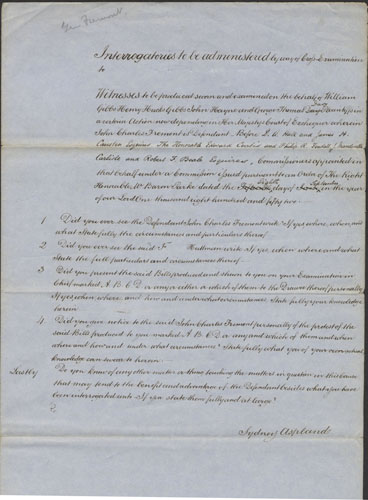 Gen Fremont.
Interrogatories to be administered by way of Cross Examination
to
Witnesses to be produced sworn and examined on the behalf of William
Gibbs Henry Hucks Gibbs John Hayne and George Thomas Plaintiffs in
a certain Action now depending in Her Majestys Court of Exchequer wherein
John Charles Fremont is Defendant. Before J. A. Hall and James H.
Esquires The Honorable Edward and Philip R. Fendall, Mandeville
Carlisle and Robert F. Esquires, Commissioners appointed in
that behalf under a Commission issued pursuant to an Order of The Right
Honorable Mr Baron dated the day of in the year
of our Lord One thousand eight hundred and fifty two.
1 Did you ever see the Defendant John Charles Fremont write. If yes where, when, and
what State fully the circumstance and particulars thereof.
2 Did you ever see the said F Huttman write If yes when where and what
State the full particulars and circumstances thereof
3 Did you present the said Bills produced and shewn to you on your Examination in
Chief marked A. B. C. D or any or either or which of them to the Drawee thereof personally
If yes when where and how and under what circumstances State fully your knowledge
herein
4 Did you give notice to the said John Charles Fremont personally of the protest of the
said Bills produced to you marked A. B. C. D or any and which of them and when
where and how and under what circumstances? State fully what you of your own actual
knowledge can swear to herein.
Lastly Do you know of any other matter or thing touching the matters in question in this cause
that may tend to the benefit and advantage of the Defendant besides what you have
been interrogated unto If yea state the same fully and at large?
Sydney